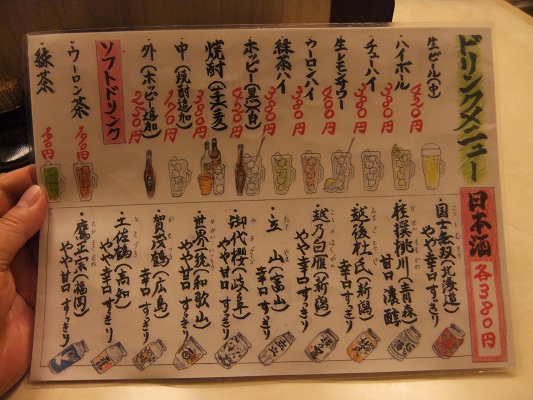 ドリンクメニュー
生ビール(中) 420円
ハイボール 380円
チューハイ 380円
生レモンサワー 400円
ウーロンハイ 380円
緑茶ハイ 380円
ホッピー(黒)(白) 420円
焼酎(芋・麦) 380円
中(焼酎追加)
外(ホッピー追加) 230円
ソフトドリンク
ウーロン茶
緑茶
日本酒 各380円
国士無双(北海道)
やや辛口 すっきり
桂撰桃川(青森)
甘口 濃醇
越後杜氏(新潟)
辛口 すっきり
越乃白雁(新潟)
やや辛口 すっきり
立山(富山)
辛口 すっきり
御代櫻(岐阜)
やや甘口 すっきり
世界一統(和歌山)
やや辛口 すっきり
賀茂鶴(広島)
辛口 すっきり
土佐鶴(高知)
辛口 すっきり
鷹正宗(福岡)
やや甘口 すっきり